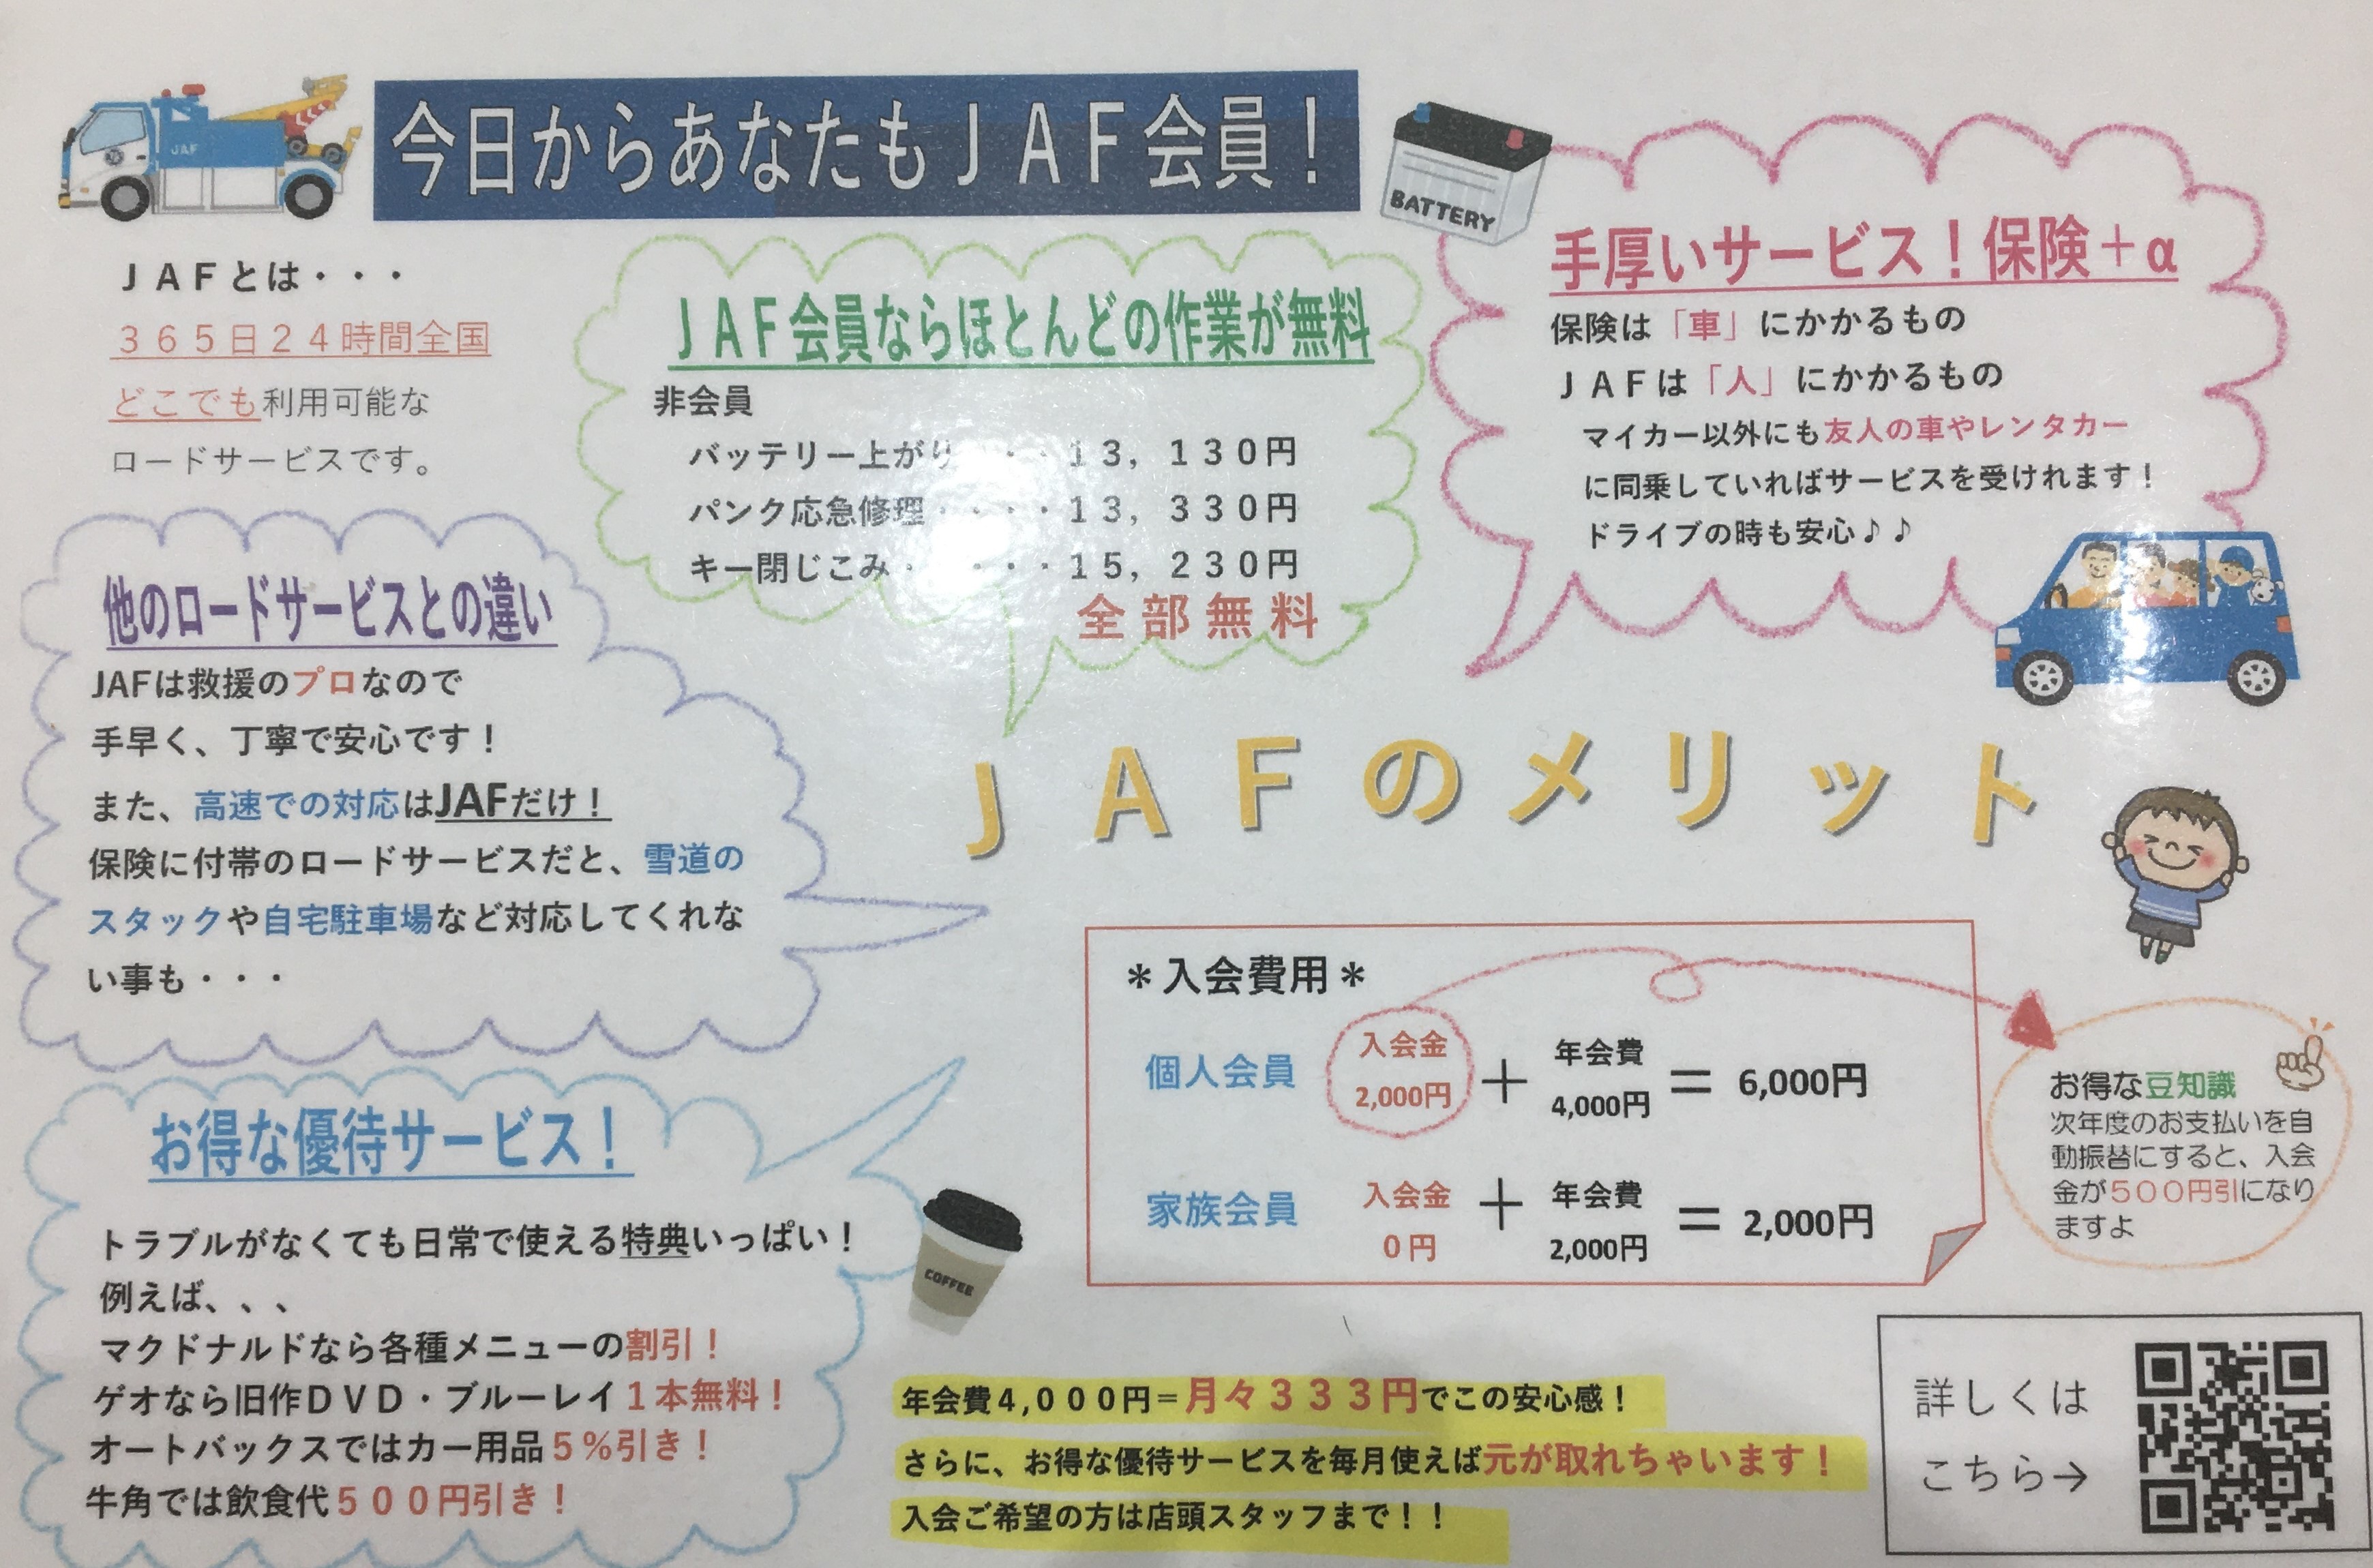 JAF
今日からあなたもＪＡＦ会員！
ＪＡＦとは・・・
３６５日２４時間全国
どこでも利用可能な
ロードサービスです。
ＪＡＦ会員ならほとんどの作業が無料
非会員
バッテリー上がり・・・１３，１３０円
パンク応急修理・・・・１３，３３０円
キー閉じこみ・・・・・１５，２３０円
全部無料
BATTERY
手厚いサービス！保険＋α
保険は「車」にかかるもの
ＪＡＦは「人」にかかるもの
マイカー以外にも友人の車やレンタカー
に同乗していればサービスを受けれます！
ドライブの時も安心♪♪
他のロードサービスとの違い
JAFは救援のプロなので
手早く、丁寧で安心です！
また、高速での対応はJAFだけ！
保険に付帯のロードサービスだと、雪道の
スタックや自宅駐車場など対応してくれな
い事も・・・
ＪＡＦのメリット
お得な優待サービス！
トラブルがなくても日常で使える特典いっぱい！
例えば、、、
マクドナルドなら各種メニューの割引！
ゲオなら旧作ＤＶＤ・ブルーレイ１本無料！
オートバックスではカー用品５％引き！
牛角では飲食代５００円引き！
COFFEE
＊入会費用＊
個人会員 入会金 2,000円 ＋ 年会費 4,000円 ＝ 6,000円
家族会員 入会金 ０円 ＋ 年会費 2,000円 ＝ 2,000円
お得な豆知識
次年度のお支払いを自
動振替にすると、入会
金が５００円引になり
ますよ
年会費４,０００円＝月々３３３円でこの安心感！
さらに、お得な優待サービスを毎月使えば元が取れちゃいます！
入会ご希望の方は店頭スタッフまで！！
詳しくは
こちら→